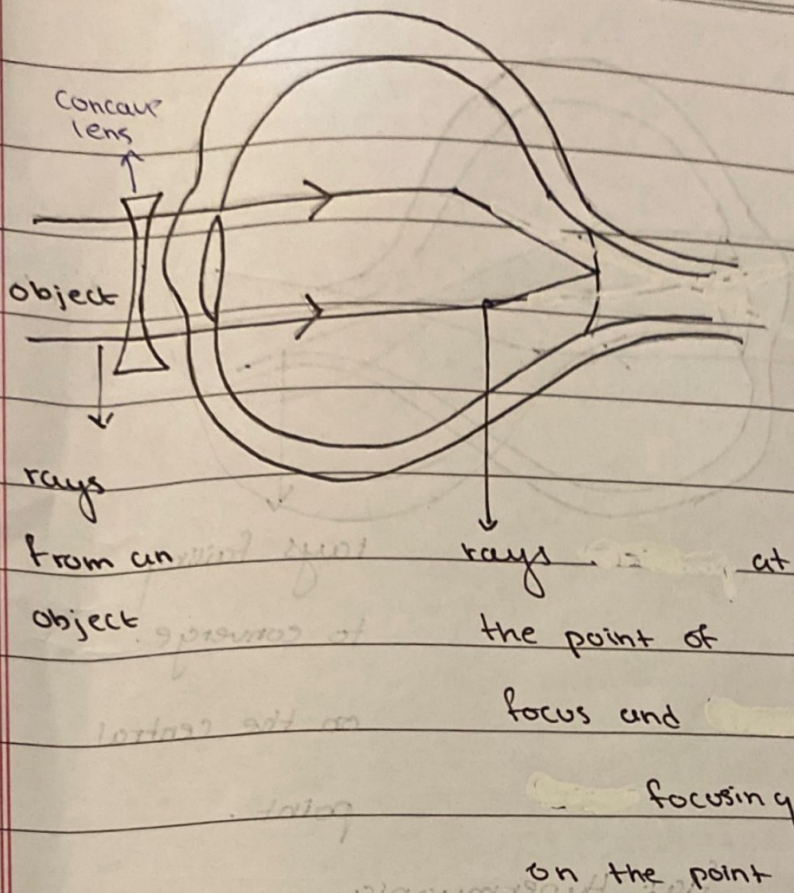 Concave
lens
object
rays
from an
object
rays at
the point of
focus and
focusing
on the point